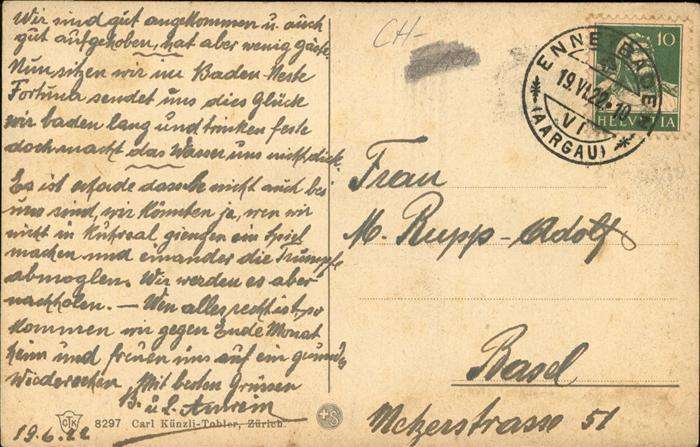 Wir sind gut angekommen u. auch
gut aufgehoben, hat aber wenig gäste.
Nun sitzen wir im Baden-Neste
Fortuna sendet uns dies Glück
wir baden lang und trinken feste
doch macht das Wasser uns nicht dick.
Es ist schade dass Sie nicht auch bei
uns sind, wir könnten ja, wen wir
nicht in Kuhrsal giengen ein Spiel
machen und einander die Trümpfe
abmoglen. Wir werden es aber
nachholen. — Wen alles recht ist, so
kommen wir gegen Ende Monat
heim und freuen uns auf ein gesundes
Wiedersehen. Mit besten Grüssen
B. u. L. Amrein
19.6.22
8297 Carl Künzli-Tobler, Zürich.
CH-
10
HELVETIA
ENNETBADEN
19.VI.22.-10
VI
(AARGAU)
Frau
M. Rupp-Adolf
Basel
Metzerstrasse 51